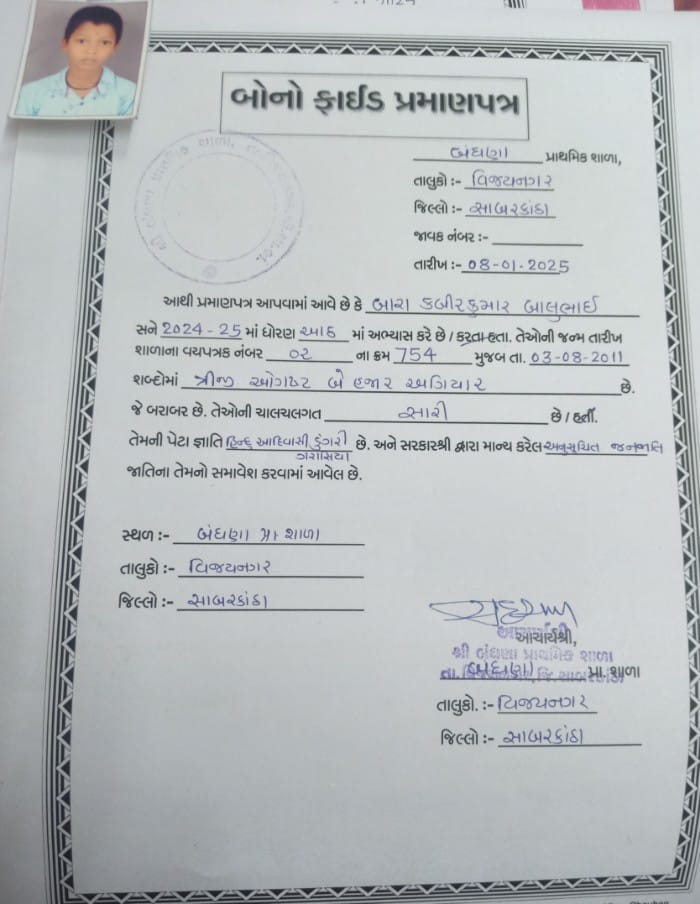 બોનો ફાઈડ પ્રમાણપત્ર
બંધણા પ્રાથમિક શાળા,
તાલુકો :- વિજયનગર
જિલ્લો :- સાબરકાંઠા
જાવક નંબર :-
તારીખ :- 08-01-2025
આથી પ્રમાણપત્ર આપવામાં આવે છે કે બારા કબીરકુમાર બાલુભાઈ
સને 2024-25 માં ધોરણ આઠ માં અભ્યાસ કરે છે / કરતા હતા. તેઓની જન્મ તારીખ
શાળાના વયપત્રક નંબર ૦૨ ના ક્રમ 754 મુજબ તા. 03-08-2011
શબ્દોમાં ત્રીજી ઓગષ્ટ બે હજાર અગિયાર છે.
જે બરાબર છે. તેઓની ચાલચલગત સારી છે / હતી.
તેમની પેટા જ્ઞાતિ હિન્દુ આદિવાસી ડુંગરી છે. અને સરકારશ્રી દ્વારા માન્ય કરેલ અનુસૂચિત જનજાતિ
ગરાસિયા
જાતિના તેમનો સમાવેશ કરવામાં આવેલ છે.
સ્થળ :- બંધણા પ્રા શાળા
તાલુકો :- વિજયનગર
જિલ્લો :- સાબરકાંઠા
આચાર્યશ્રી,
શ્રી બંધણા પ્રાથમિક શાળા
બંધણા પ્રા. શાળા
તાલુકો. :- વિજયનગર
જિલ્લો :- સાબરકાંઠા